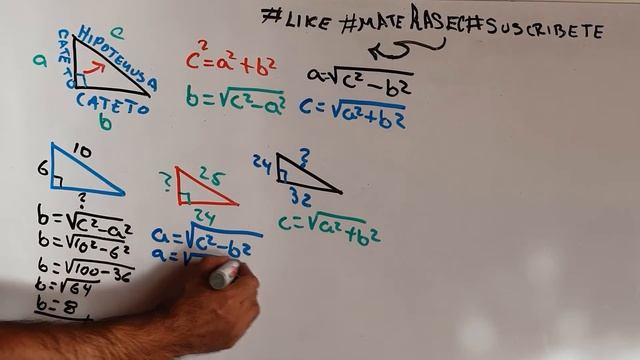 #LIKE #MATERASEC #SUSCRIBETE
a
CATETO
HIPOTENUSA
c
CATETO
b
c²=a²+b²
b=√c²-a²
a=√c²-b²
c=√a²+b²
6
10
?
b=√c²-a²
b=√10²-6²
b=√100-36
b=√64
b=8
?
25
24
a=√c²-b²
a=√
24
?
32
c=√a²+b²